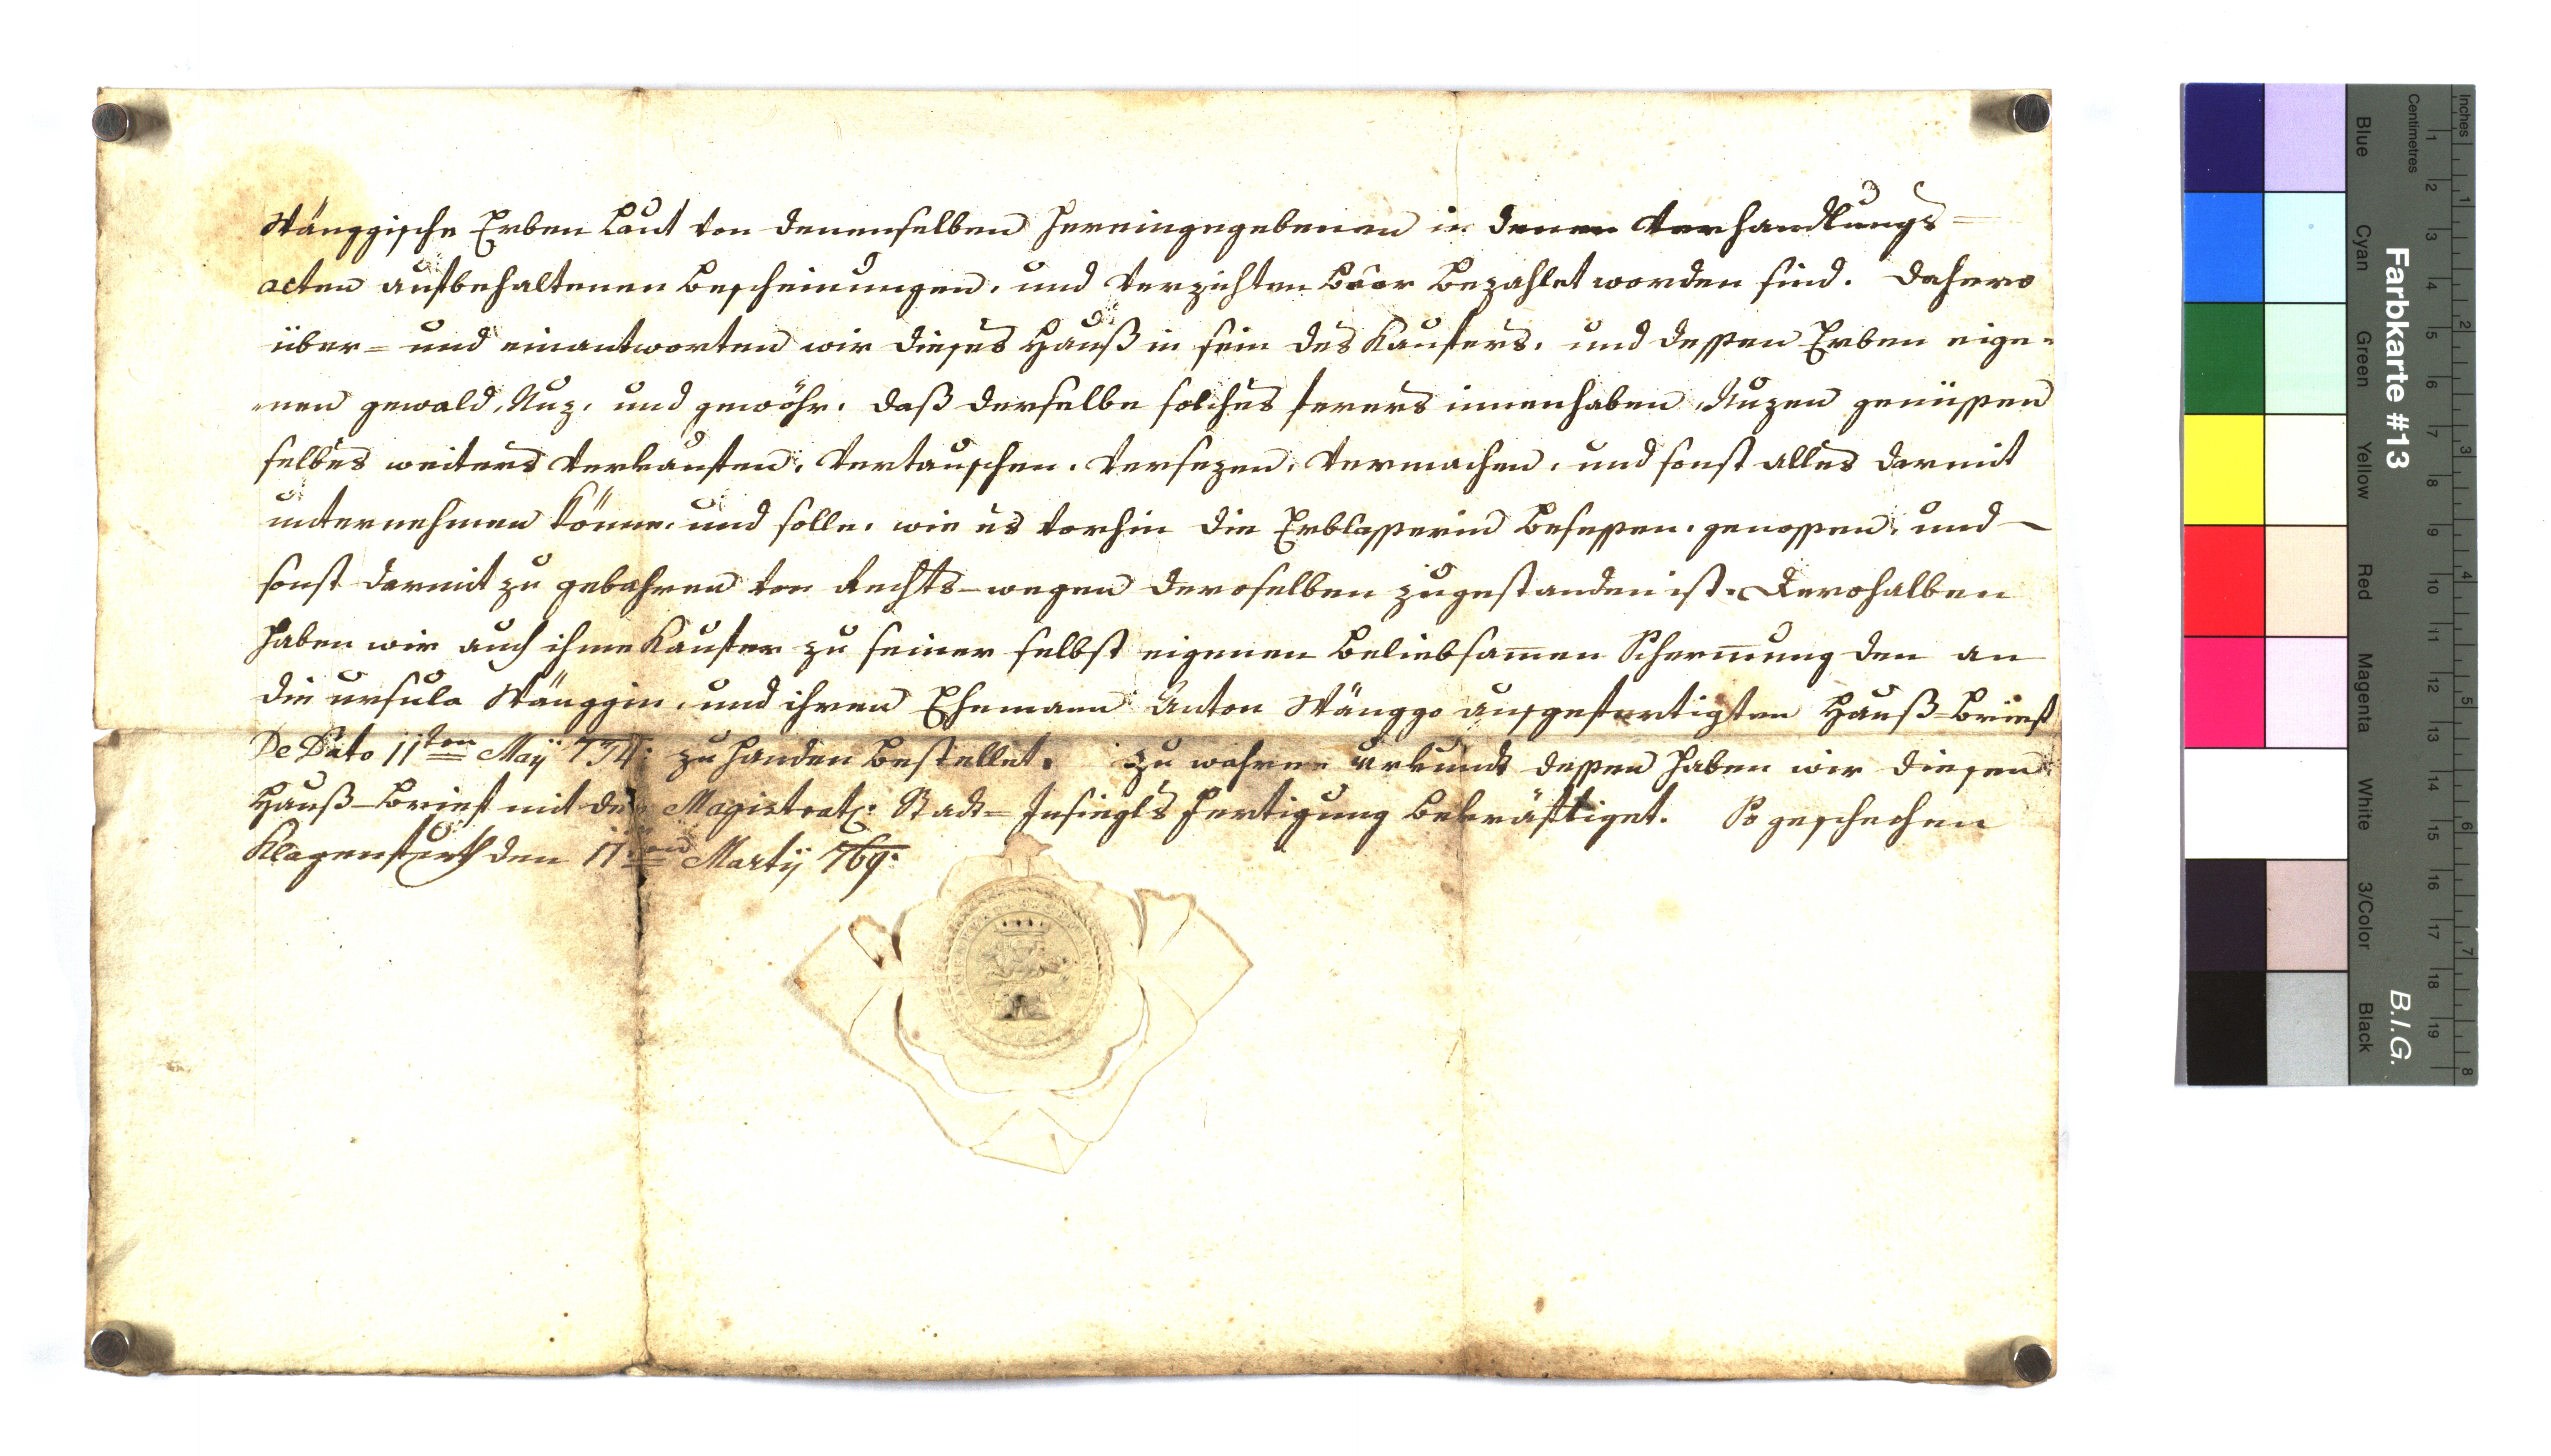 Wänggische Erben Laut von denenselben hereingegebenen in denen Verhandlungs=
acten aufbehaltenen Bescheinungen, und Verzichten Baar bezahlet worden sind. Dahero
über= und einantworten wir dieses Hauß in sein des Kaufers, und dessen Erben eige=
=nen gewald, Nuz, und gewöhr, daß derselbe solches ferers innenhaben, Nuzen genüssen
selbes weiters verkaufen, vertauschen, versezen, vermachen, und sonst alles darmit
unternehmen könne, und solle, wie es vorhin die Erblasserin besessen, genossen, und
sonst darmit zu gebahren von Rechts-wegen deroselben zugestanden ist. Derohalben
haben wir auch ihme Kaufer zu seiner selbst eigenen beliebsamen Schermung den an
die Ursula Wänggin, und ihren Ehemann Anton Wänggo ausgefertigten Hauß-Brief
De Dato 11ten Maÿ 734: zu handen bestellet. Zu wahren Urkund dessen haben wir diesen
Hauß-Brief mit der Magistrat: Stadt=Insiegls Fertigung bekräftiget. So geschehen
Klagenfurth den 17ten Martÿ 769.
Farbkarte #13
B.I.G.
Inches
1 2 3 4 5 6 7 8
Centimetres
1 2 3 4 5 6 7 8 9 10 11 12 13 14 15 16 17 18 19
Blue Cyan Green Yellow Red Magenta White 3/Color Black